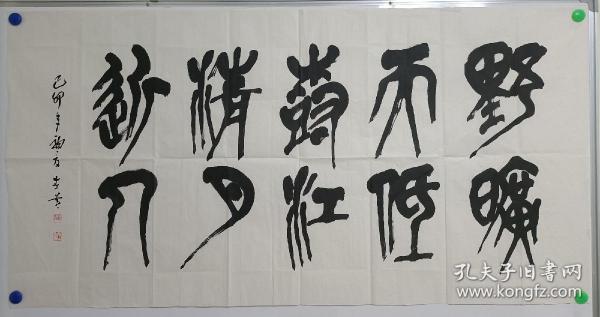 野曠
天低
樹江
清月
近人
己卯年
孔夫子旧书网
www.kongfz.com